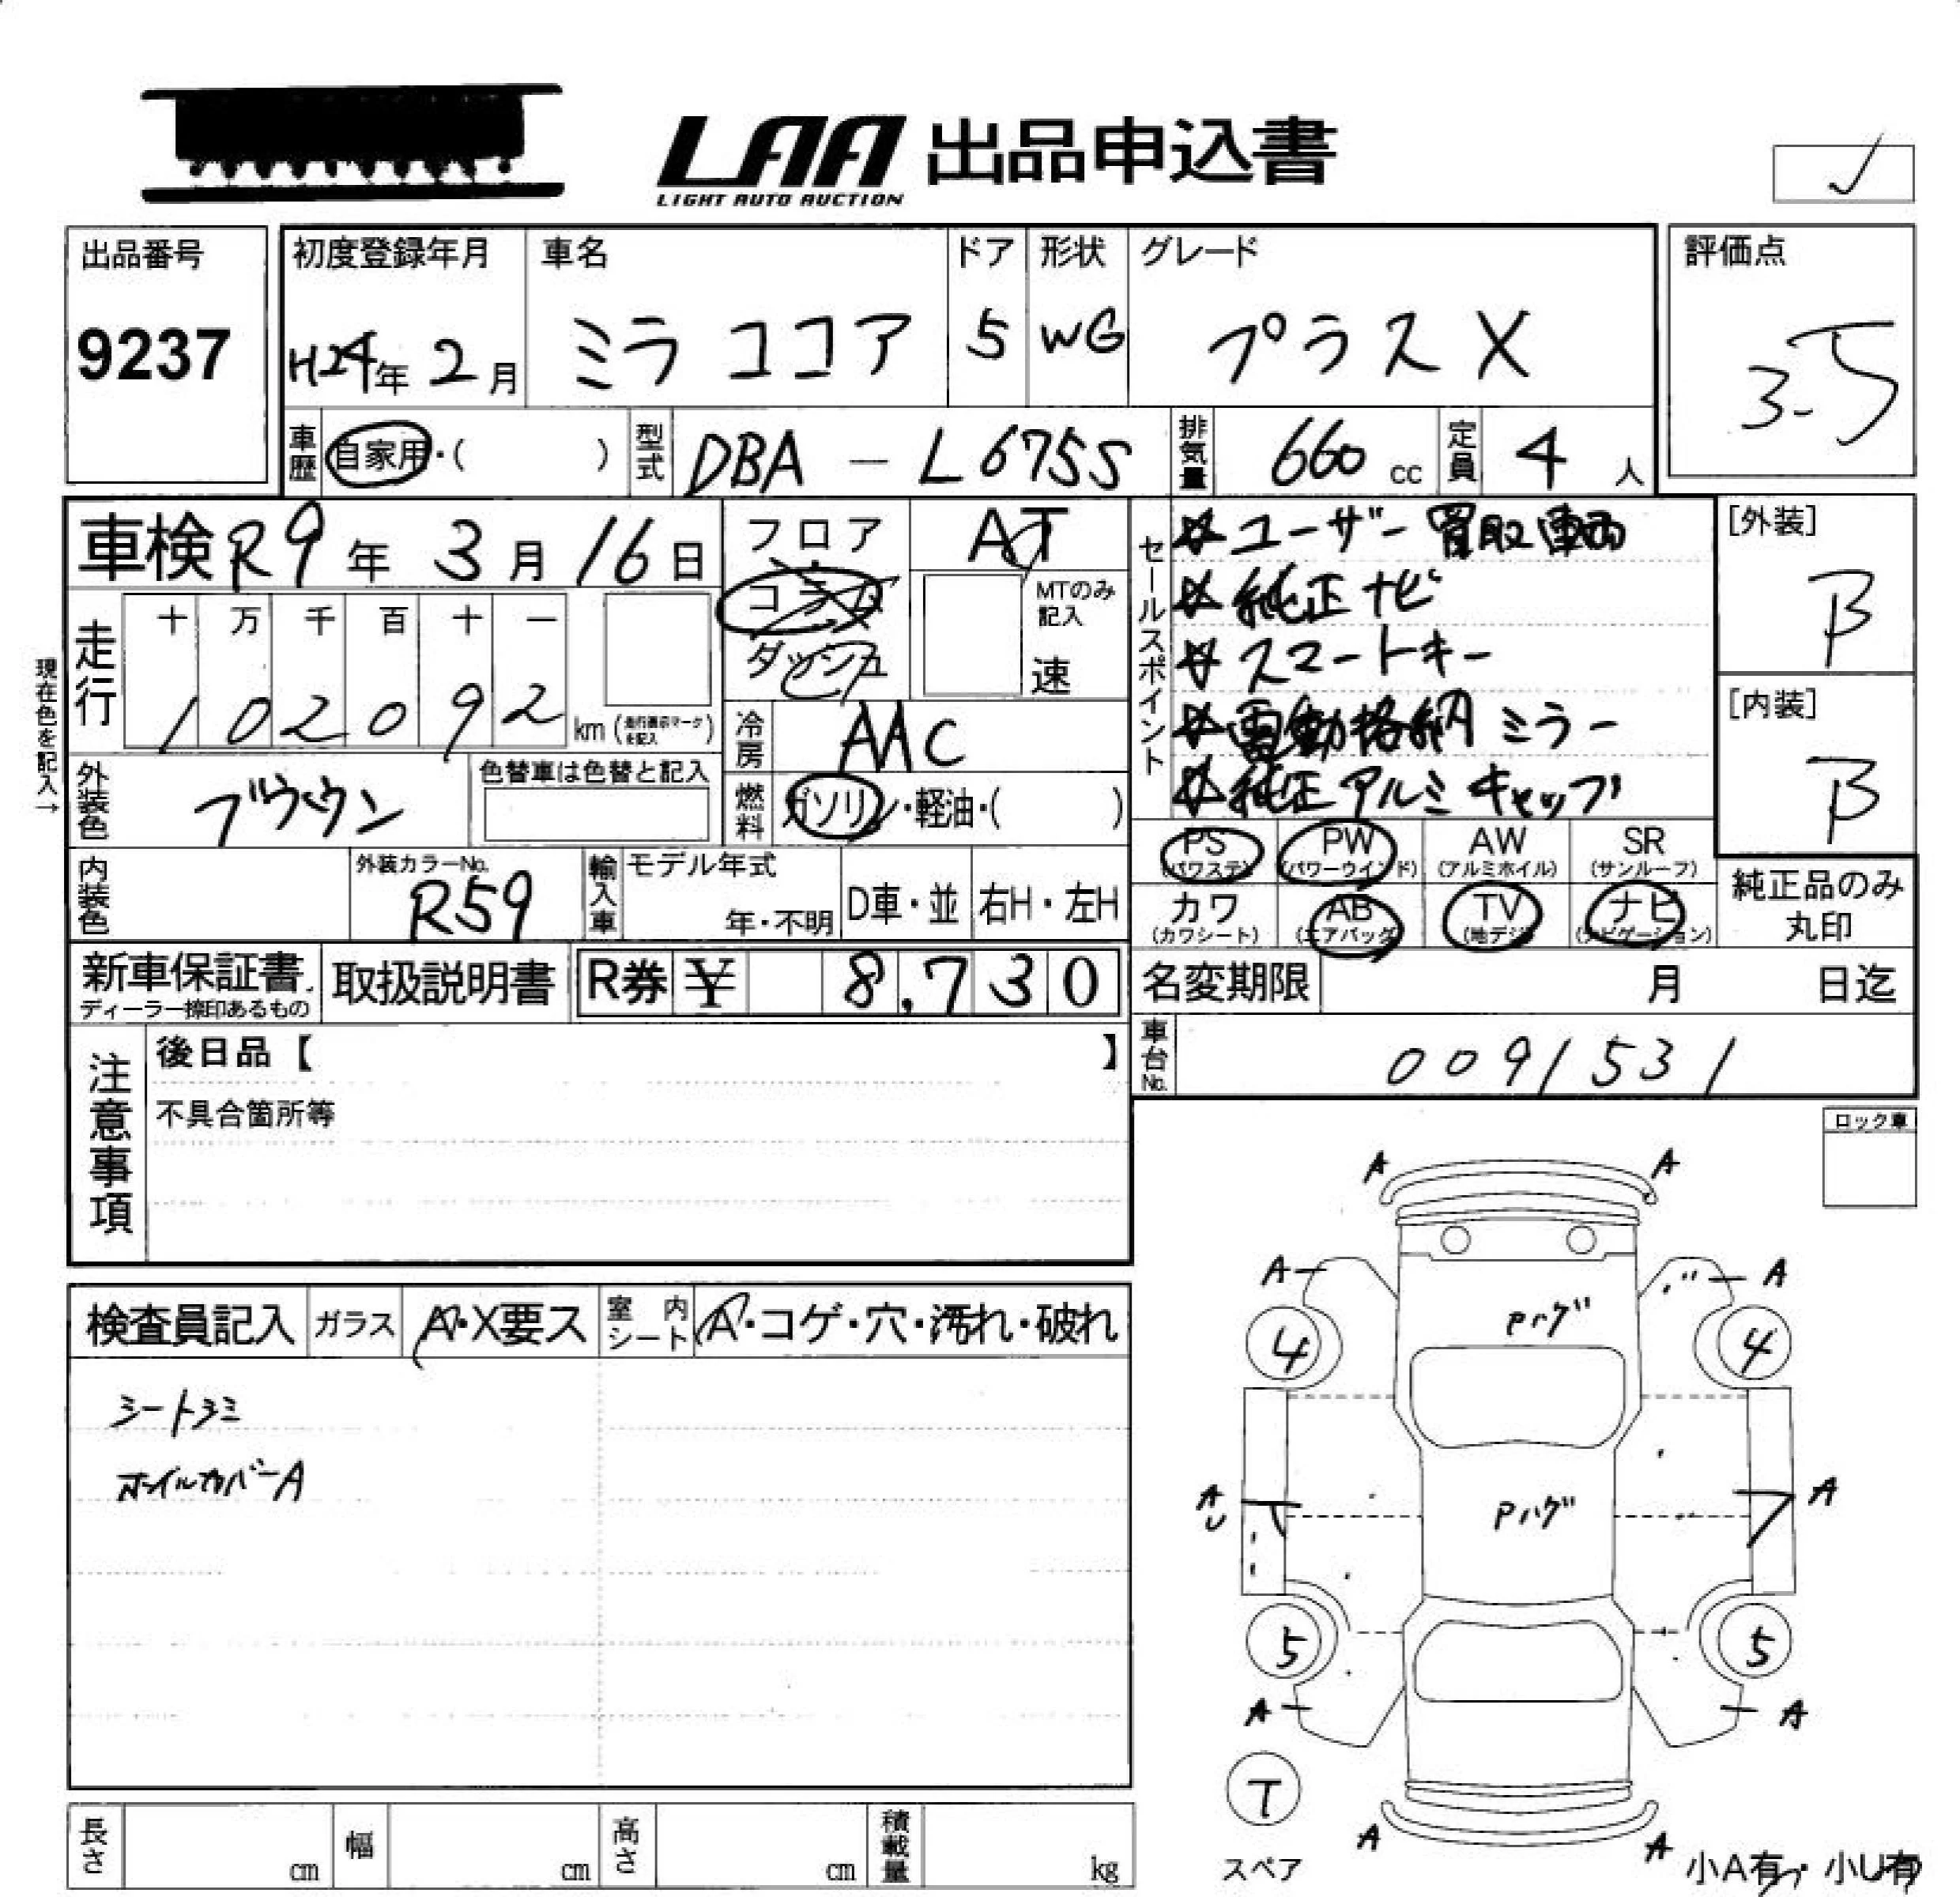 LAA 出品申込書
LIGHT AUTO AUCTION
出品番号
9237
初度登録年月
H24年 2月
車名
ミラ ココア
ドア
5
形状
WG
グレード
プラス X
評価点
3.5
車歴 自家用・( )
型式 DBA - L675S
排気量 660 cc
定員 4 人
車検 R9年 3月 16日
フロア
コラム
ダッシュ
AT
MTのみ記入
速
セールスポイント
☆ユーザー買取車両
☆純正ナビ
☆スマートキー
☆電動格納ミラー
☆純正アルミキャップ
[外装]
B
[内装]
B
現在色を記入→
走行
十 万 千 百 十 一
1 0 2 0 9 2 km (走行表示マークを記入)
冷房 AAC
外装色 ブラウン
色替車は色替と記入
燃料 ガソリン・軽油・( )
PS (パワステ)
PW (パワーウインド)
AW (アルミホイル)
SR (サンルーフ)
カワ (カワシート)
AB (エアバッグ)
TV (地デジ)
ナビ (ナビゲーション)
純正品のみ丸印
内装色
外装カラーNo.
R59
輸入車
モデル年式
年・不明
D車・並
右H・左H
新車保証書
ディーラー捺印あるもの
取扱説明書
R券 ¥ 8,730
名変期限 月 日迄
車台No. 0091531
注意事項
後日品【 】
不具合箇所等
ロック車
検査員記入
ガラス A・X要ス
室内シート A・コゲ・穴・汚れ・破れ
シートシミ
ホイルカバーA
A A
A A
Pハゲ
4 4
A U
Pハゲ
A
5 5
A A
T
スペア
A A
小A有・小U有
長さ cm
幅 cm
高さ cm
積載量 kg